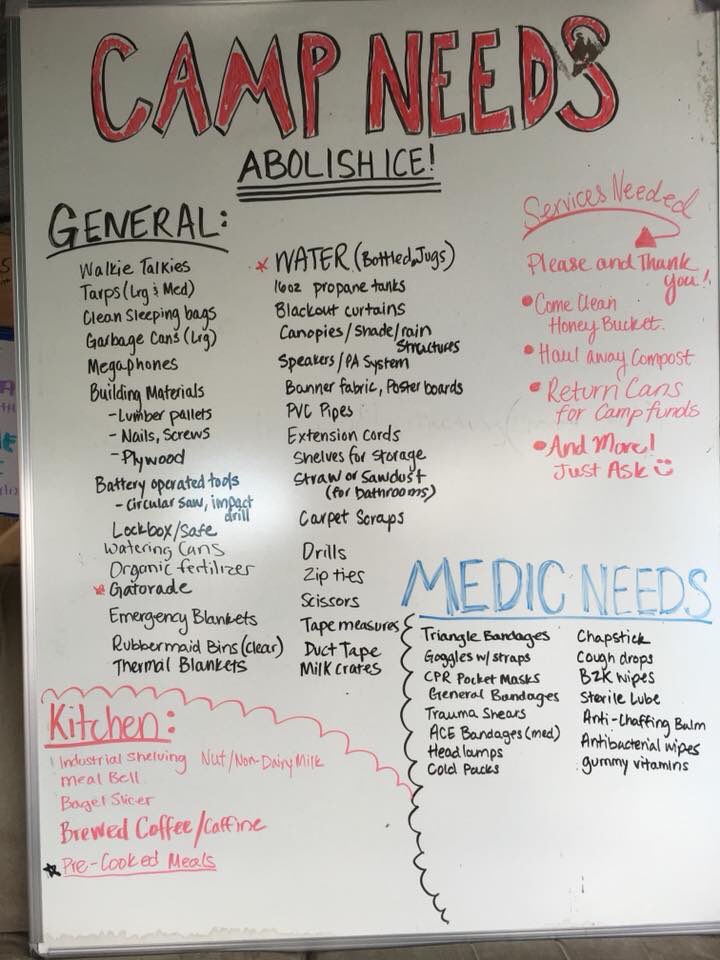 CAMP NEEDS
ABOLISH ICE!
GENERAL:
Walkie Talkies
Tarps (Lrg & Med)
Clean Sleeping bags
Garbage Cans (Lrg)
Megaphones
Building Materials
- Lumber pallets
- Nails, Screws
- Plywood
Battery operated tools
- Circular saw, impact
drill
Lockbox/Safe
Watering Cans
Organic fertilizer
* Gatorade
Emergency Blankets
Rubbermaid Bins (Clear)
Thermal Blankets
* WATER (Bottled, Jugs)
16oz propane tanks
Blackout curtains
Canopies/Shade/rain
Structures
Speakers/PA System
Banner fabric, Poster boards
PVC Pipes
Extension Cords
Shelves for Storage
Straw or Sawdust
(for bathrooms)
Carpet Scraps
Drills
Zip ties
Scissors
Tape measures
Duct Tape
Milk crates
Services Needed
Please and Thank
you!
• Come Clean
Honey Bucket.
• Haul away Compost
• Return Cans
for Camp funds
• And More!
Just Ask
MEDIC NEEDS
Triangle Bandages
Goggles w/ straps
CPR Pocket Masks
General Bandages
Trauma Shears
ACE Bandages (med)
Headlamps
Cold Packs
Chapstick
Cough drops
BZK wipes
Sterile Lube
Anti-Chaffing Balm
Antibacterial wipes
gummy vitamins
Kitchen:
Industrial Shelving
Nut/Non-Dairy Milk
meal Bell
Bagel Slicer
Brewed Coffee/Caffine
Pre-Cooked Meals